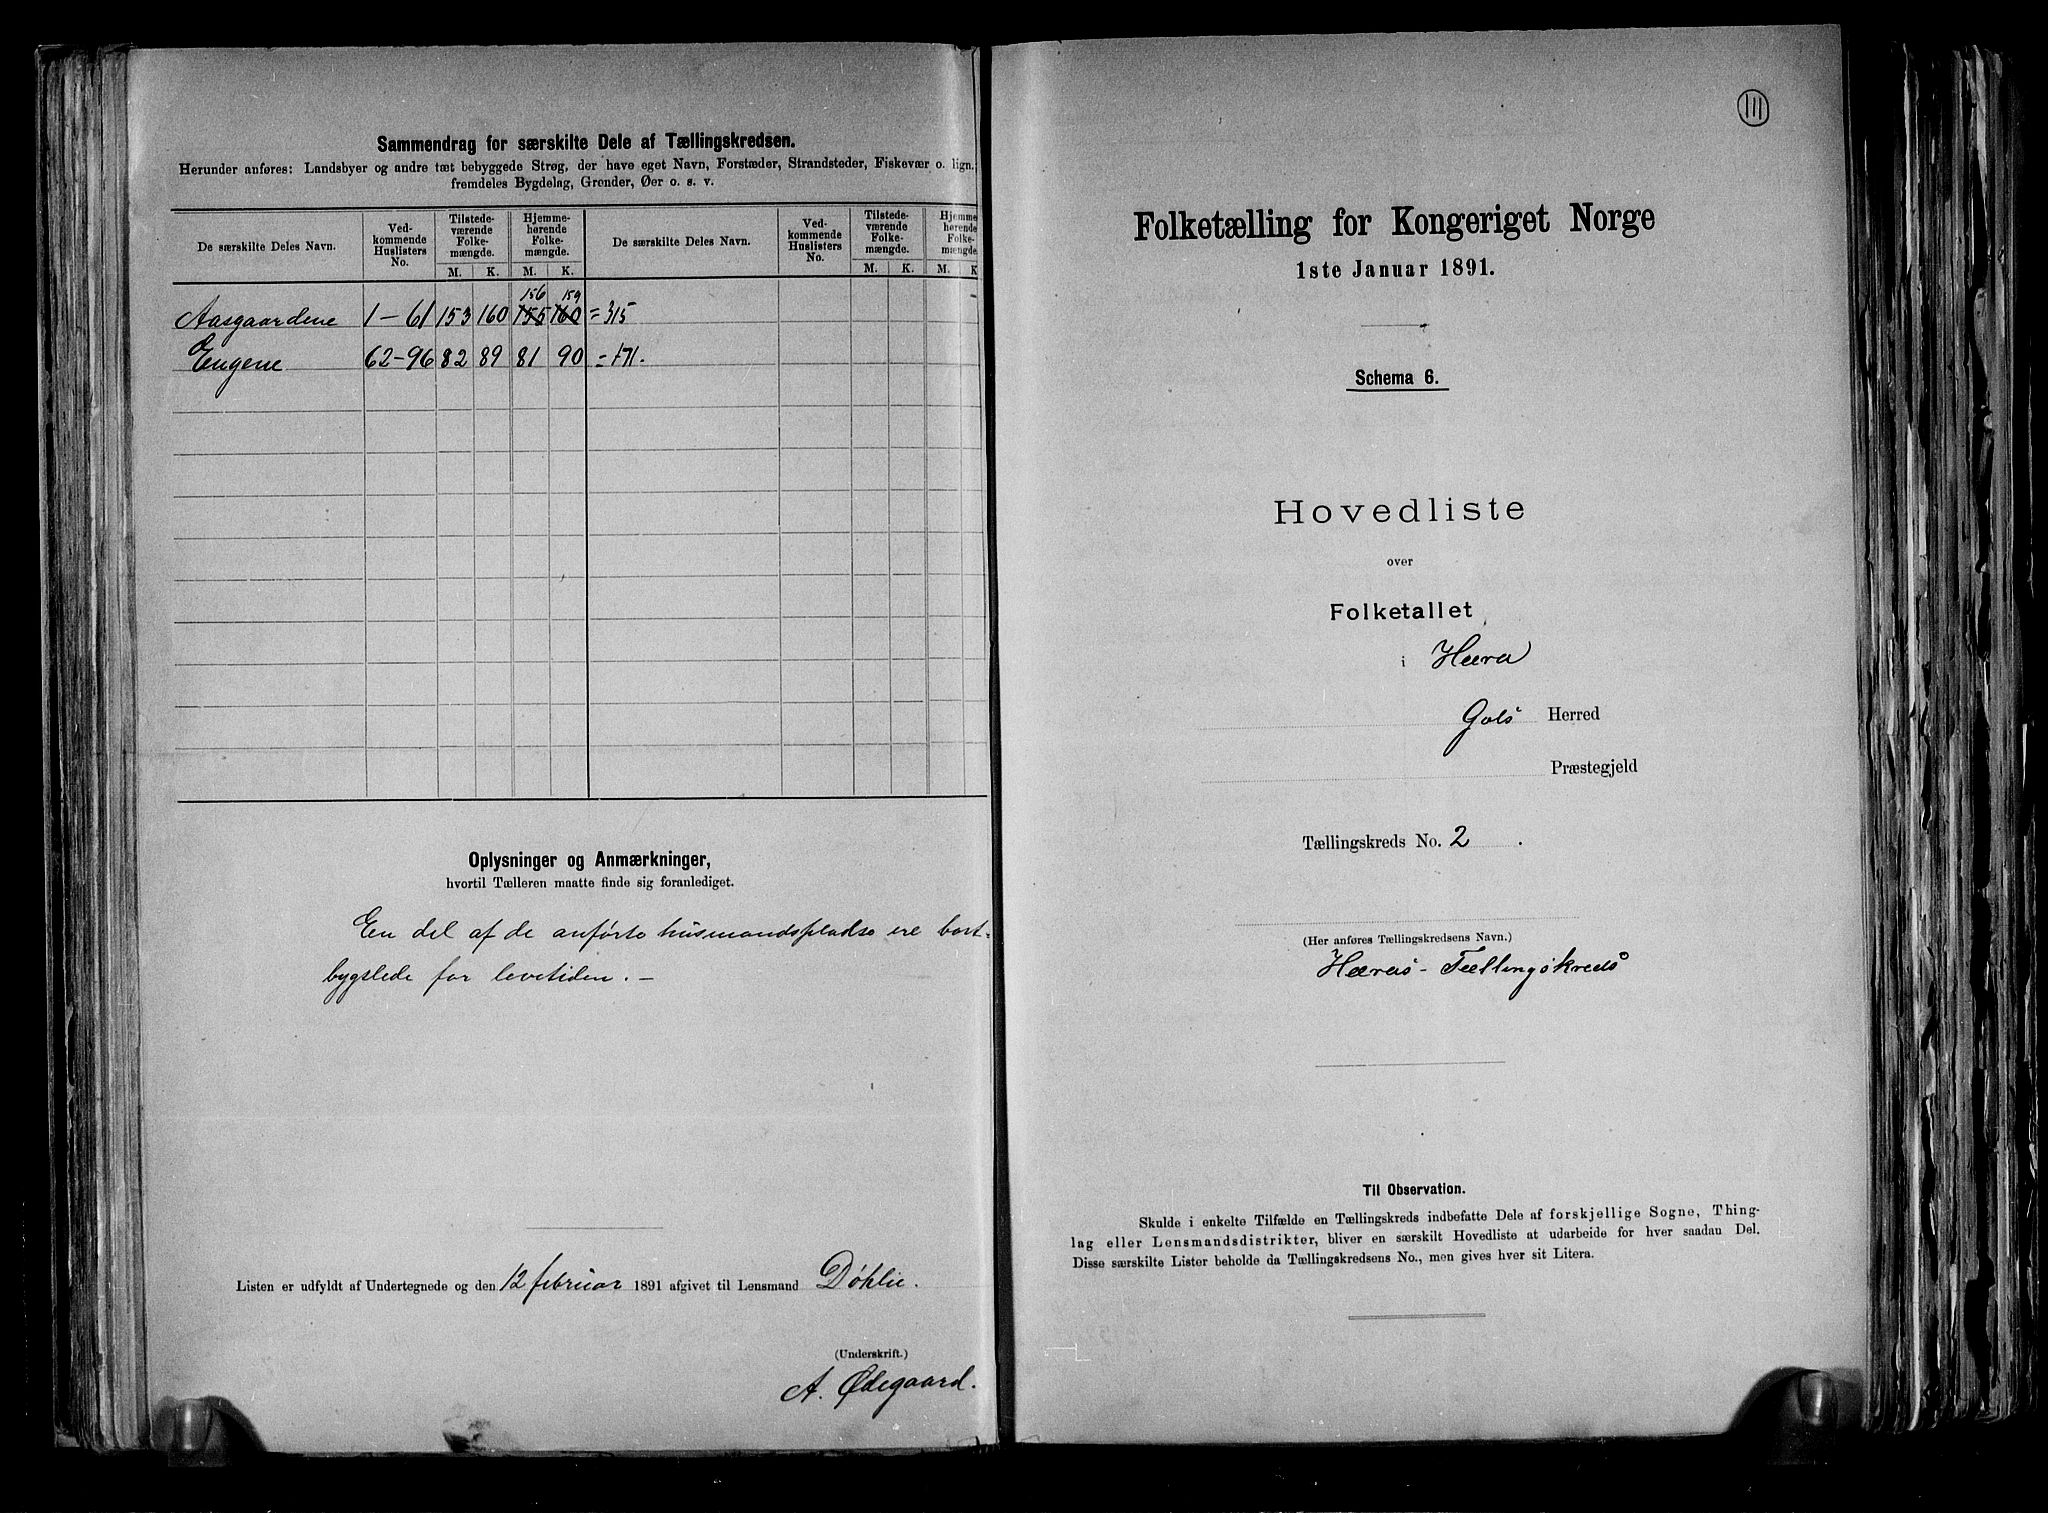 Sammendrag for særskilte Dele af Tællingskredsen.
Herunder anføres: Landsbyer og andre tæt bebyggede Strøg, der have eget Navn, Forstæder, Strandsteder, Fiskevær o. lign.,
fremdeles Bygdelag, Grender, Øer o. s. v.
De særskilte Deles Navn. Ved-kommende Huslisters No. Tilstede-værende Folke-mængde. M. K. Hjemme-hørende Folke-mængde. M. K. De særskilte Deles Navn. Ved-kommende Huslisters No. Tilstede-værende Folke-mængde. M. K. Hjemme-hørende Folke-mængde. M. K.
156 159
Aasgaardene 1-61 153 160 155 160 = 315
Engene 62-96 82 89 81 90 = 171.
Oplysninger og Anmærkninger,
hvortil Tælleren maatte finde sig foranlediget.
En del af de anførte husmandspladse ere bort-
bygslede for levetiden. -
Listen er udfyldt af Undertegnede og den 12 februar 1891 afgivet til Lensmand Døhlie.
(Underskrift.)
A. Ødegaard.
111
Folketælling for Kongeriget Norge
1ste Januar 1891.
Schema 6.
Hovedliste
over
Folketallet
i Hæra
Gols Herred
Præstegjeld
Tællingskreds No. 2.
(Her anføres Tællingskredsens Navn.)
Hæras-Tællingskreds
Til Observation.
Skulde i enkelte Tilfælde en Tællingskreds indbefatte Dele af forskjellige Sogne, Thing-
lag eller Lensmandsdistrikter, bliver en særskilt Hovedliste at udarbeide for hver saadan Del.
Disse særskilte Lister beholde da Tællingskredsens No., men gives hver sit Litera.